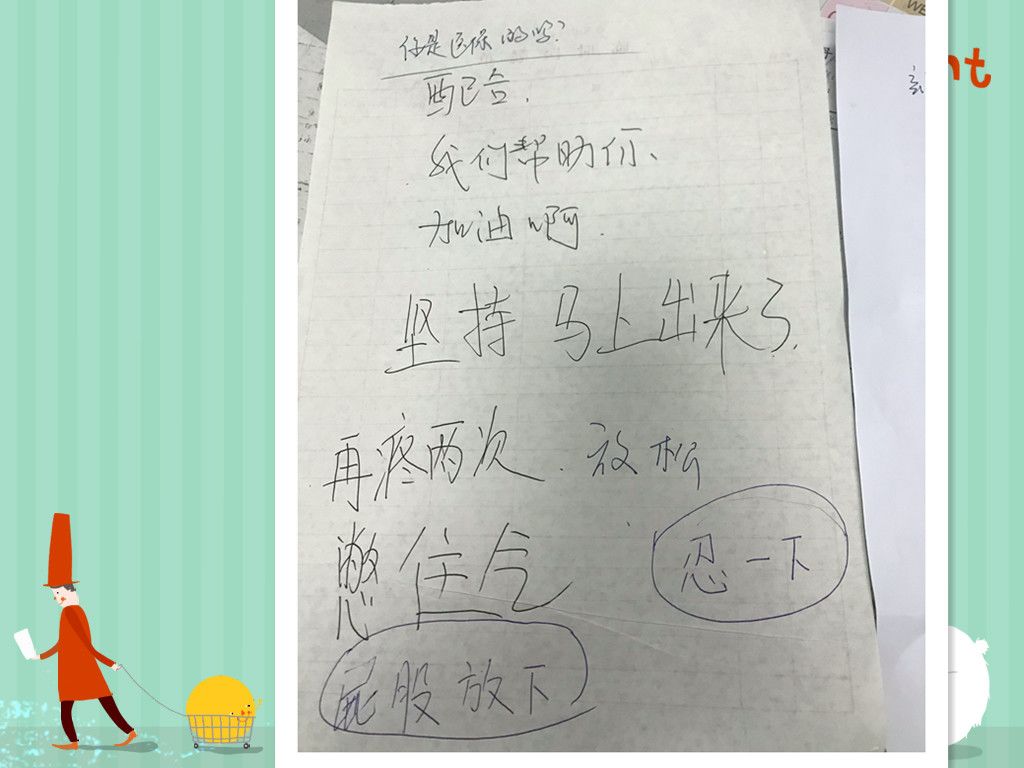 你是医保的吗?
配合.
我们帮助你、
加油啊.
坚持 马上出来了.
再疼两次. 放松
憋住气
忍一下
屁股放下